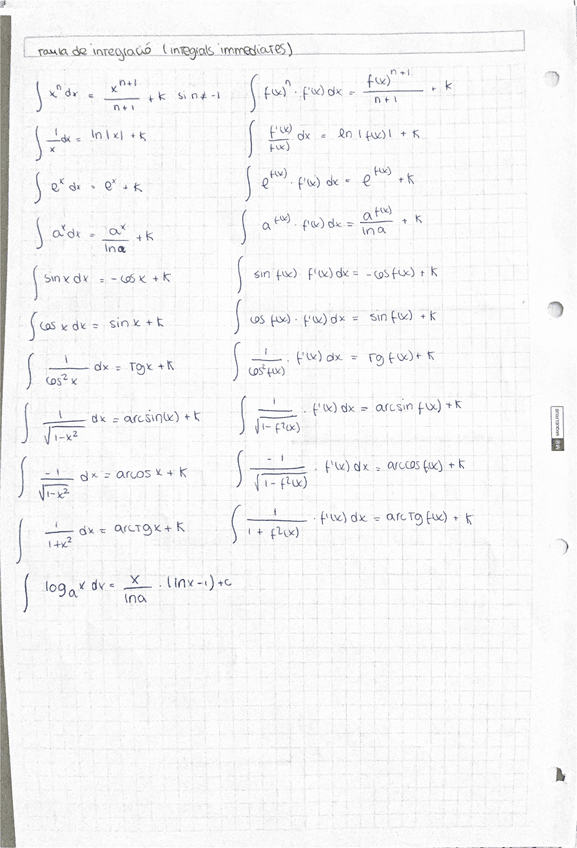 Taula de integració (integrals immediates)
∫ xⁿ dx = xⁿ⁺¹/(n+1) + K si n ≠ -1    ∫ f(x)ⁿ · f'(x) dx = f(x)ⁿ⁺¹/(n+1) + K
∫ 1/x dx = ln|x| + K    ∫ f'(x)/f(x) dx = ln|f(x)| + K
∫ eˣ dx = eˣ + K    ∫ e^f(x) · f'(x) dx = e^f(x) + K
∫ aˣ dx = aˣ/ln a + K    ∫ a^f(x) · f'(x) dx = a^f(x)/ln a + K
∫ sin x dx = -cos x + K    ∫ sin f(x) f'(x) dx = -cos f(x) + K
∫ cos x dx = sin x + K    ∫ cos f(x) · f'(x) dx = sin f(x) + K
∫ 1/cos² x dx = Tg x + K    ∫ 1/cos² f(x) · f'(x) dx = Tg f(x) + K
∫ 1/√(1-x²) dx = arcsin(x) + K    ∫ 1/√(1-f²(x)) · f'(x) dx = arcsin f(x) + K
∫ -1/√(1-x²) dx = arcos x + K    ∫ -1/√(1-f²(x)) · f'(x) dx = arccos f(x) + K
∫ 1/(1+x²) dx = arcTg x + K    ∫ 1/(1+f²(x)) · f'(x) dx = arcTg f(x) + K
∫ logₐ x dx = x/ln a · (ln x - 1) + C
MIQUELRIUS